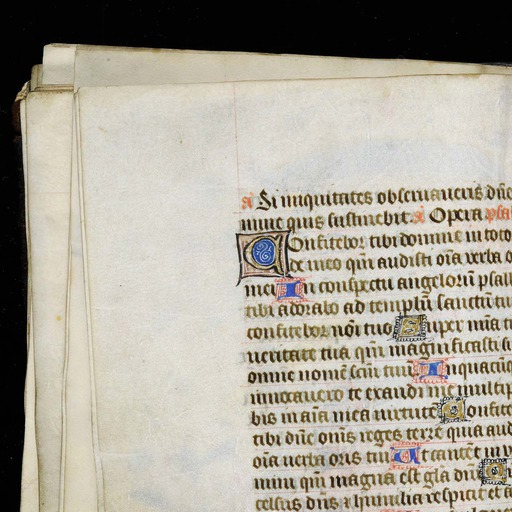 a Si iniquitates obseruaueris dñe
mine quis sustinebit. a Opera psal
Confitebor tibi domine in toto
de meo qm̃ audisti oĩa verba o
mei In conspectu angelorũ psall
tibi adorabo ad templũ sanctũ tu
confitebor nõi tuo Super mĩa t
ueritate tua qm̃ magnificasti s
omne nomẽ scm̃ tuũ In quacũq
inuocauero te exaudi me multip
bis in aĩa mea uirtutẽ Confite
tibi dñe om̃s reges terre quia aud
oĩa uerba oris tui Et cantẽt in v
mini qm̃ magna est glã dñi
celsus dñs ⁊ humilia respicit et a